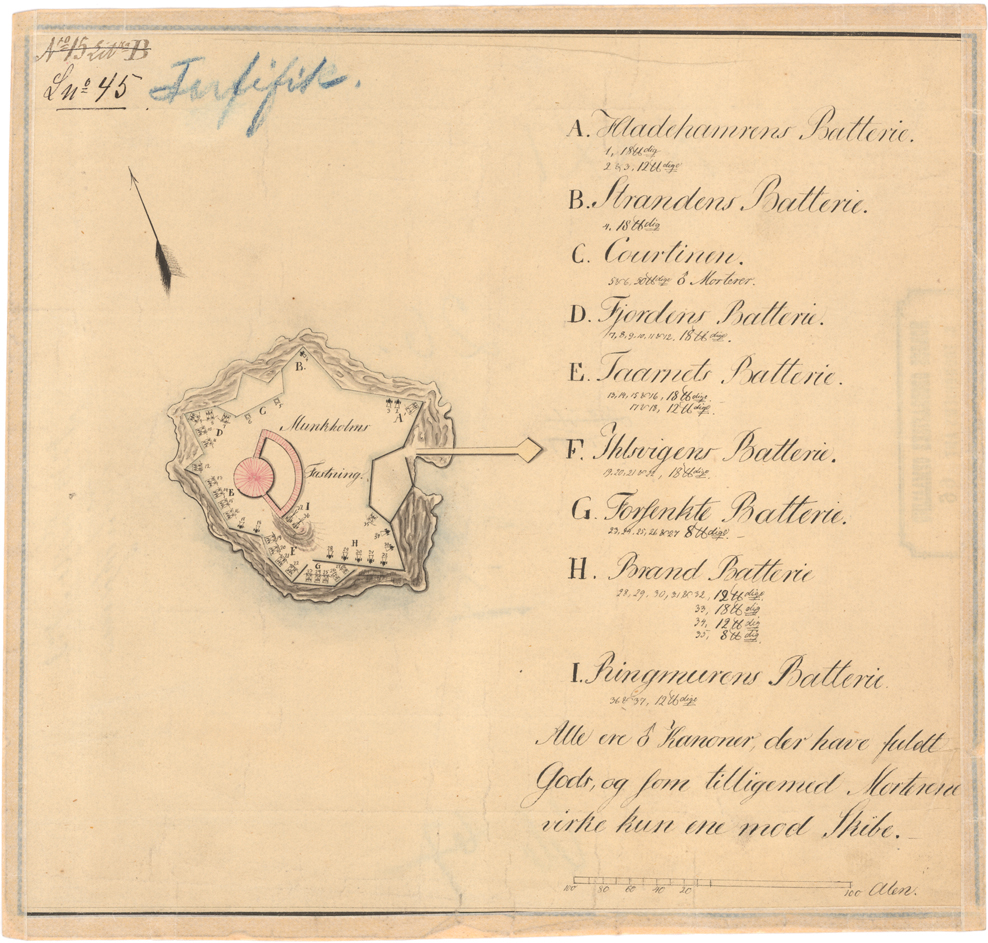 Nro 15 Litra B
Lno 45
A. Hladehamrens Batterie.
1, 18 ℔dig
2 & 3, 12 ℔dige
B. Strandens Batterie.
4, 18 ℔dig
C. Courtinen.
5 & 6, 50 ℔dige Morterer.
D. Fjordens Batterie.
7, 8, 9, 10, 11 & 12, 18 ℔dige.
E. Taarnets Batterie.
13, 14, 15 & 16, 18 ℔dige.
17 & 18, 12 ℔dige.
F. Ihlsvigens Batterie.
19, 20, 21 & 22, 18 ℔dige.
G. Forsenkte Batterie.
23, 24, 25, 26 & 27 8 ℔dige
H. Brand Batterie
28, 29, 30, 31 & 32, 12 ℔dige
33, 18 ℔dig
34, 12 ℔dig
35, 8 ℔dig
I. Ringmurens Batterie.
36 & 37, 12 ℔dige
Alle ere Kanoner, der have fuldt
Gods, og som tilligemed Morterene
virke kun ene mod Skibe.
B.
C
A
D
Munkholms
Fæstning.
E
I
F
H
G
100 80 60 40 20 100 Alen.